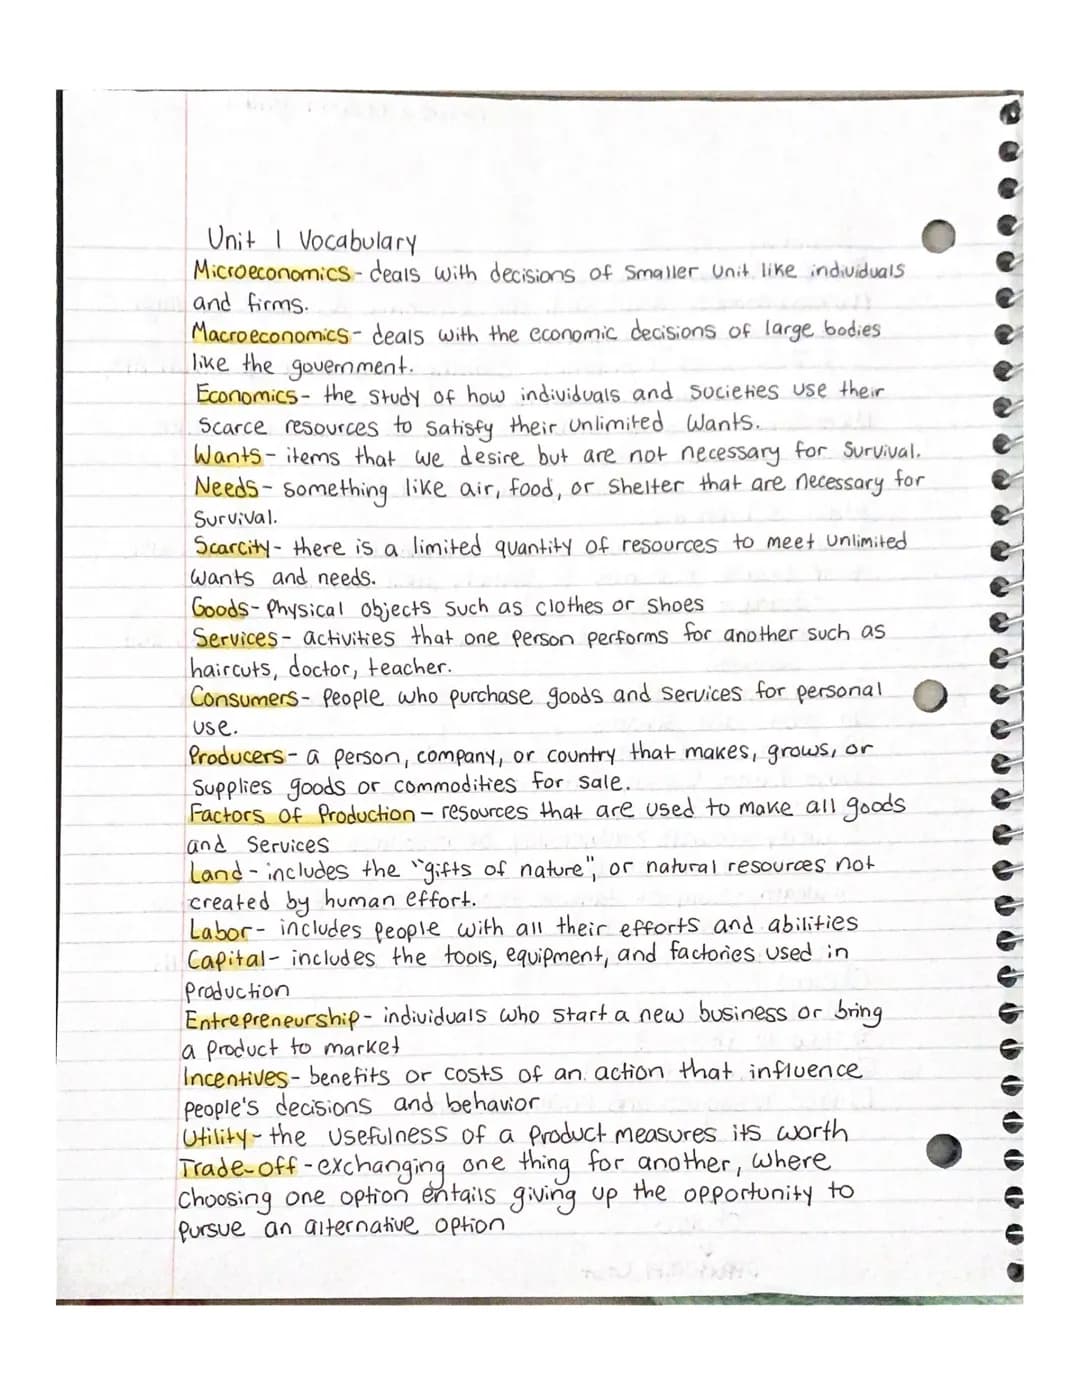 Unit 1 Vocabulary
Microeconomics - deals with decisions of smaller unit like individuals
and firms.
Macroeconomics - deals with the economic decisions of large bodies
like the government.
Economics - the study of how individuals and societies use their
scarce resources to satisfy their unlimited wants.
Wants - items that we desire but are not necessary for survival.
Needs - something like air, food, or shelter that are necessary for
survival.
Scarcity - there is a limited quantity of resources to meet unlimited
wants and needs.
Goods - physical objects such as clothes or shoes
Services - activities that one person performs for another such as
haircuts, doctor, teacher.
Consumers - people who purchase goods and services for personal
use.
Producers - a person, company, or country that makes, grows, or
supplies goods or commodities for sale.
Factors of Production - resources that are used to make all goods
and services
Land - includes the "gifts of nature", or natural resources not
created by human effort.
Labor - includes people with all their efforts and abilities
Capital - includes the tools, equipment, and factories used in
production
Entrepreneurship - individuals who start a new business or bring
a product to market
Incentives - benefits or costs of an action that influence
people's decisions and behavior
Utility - the usefulness of a product measures its worth
Trade-off - exchanging one thing for another, where
choosing one option entails giving up the opportunity to
pursue an alternative option